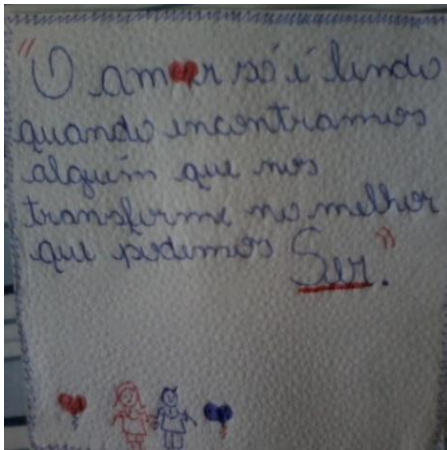 "O amor só é lindo
quando encontramos
alguém que nos
transforme no melhor
que podemos Ser."